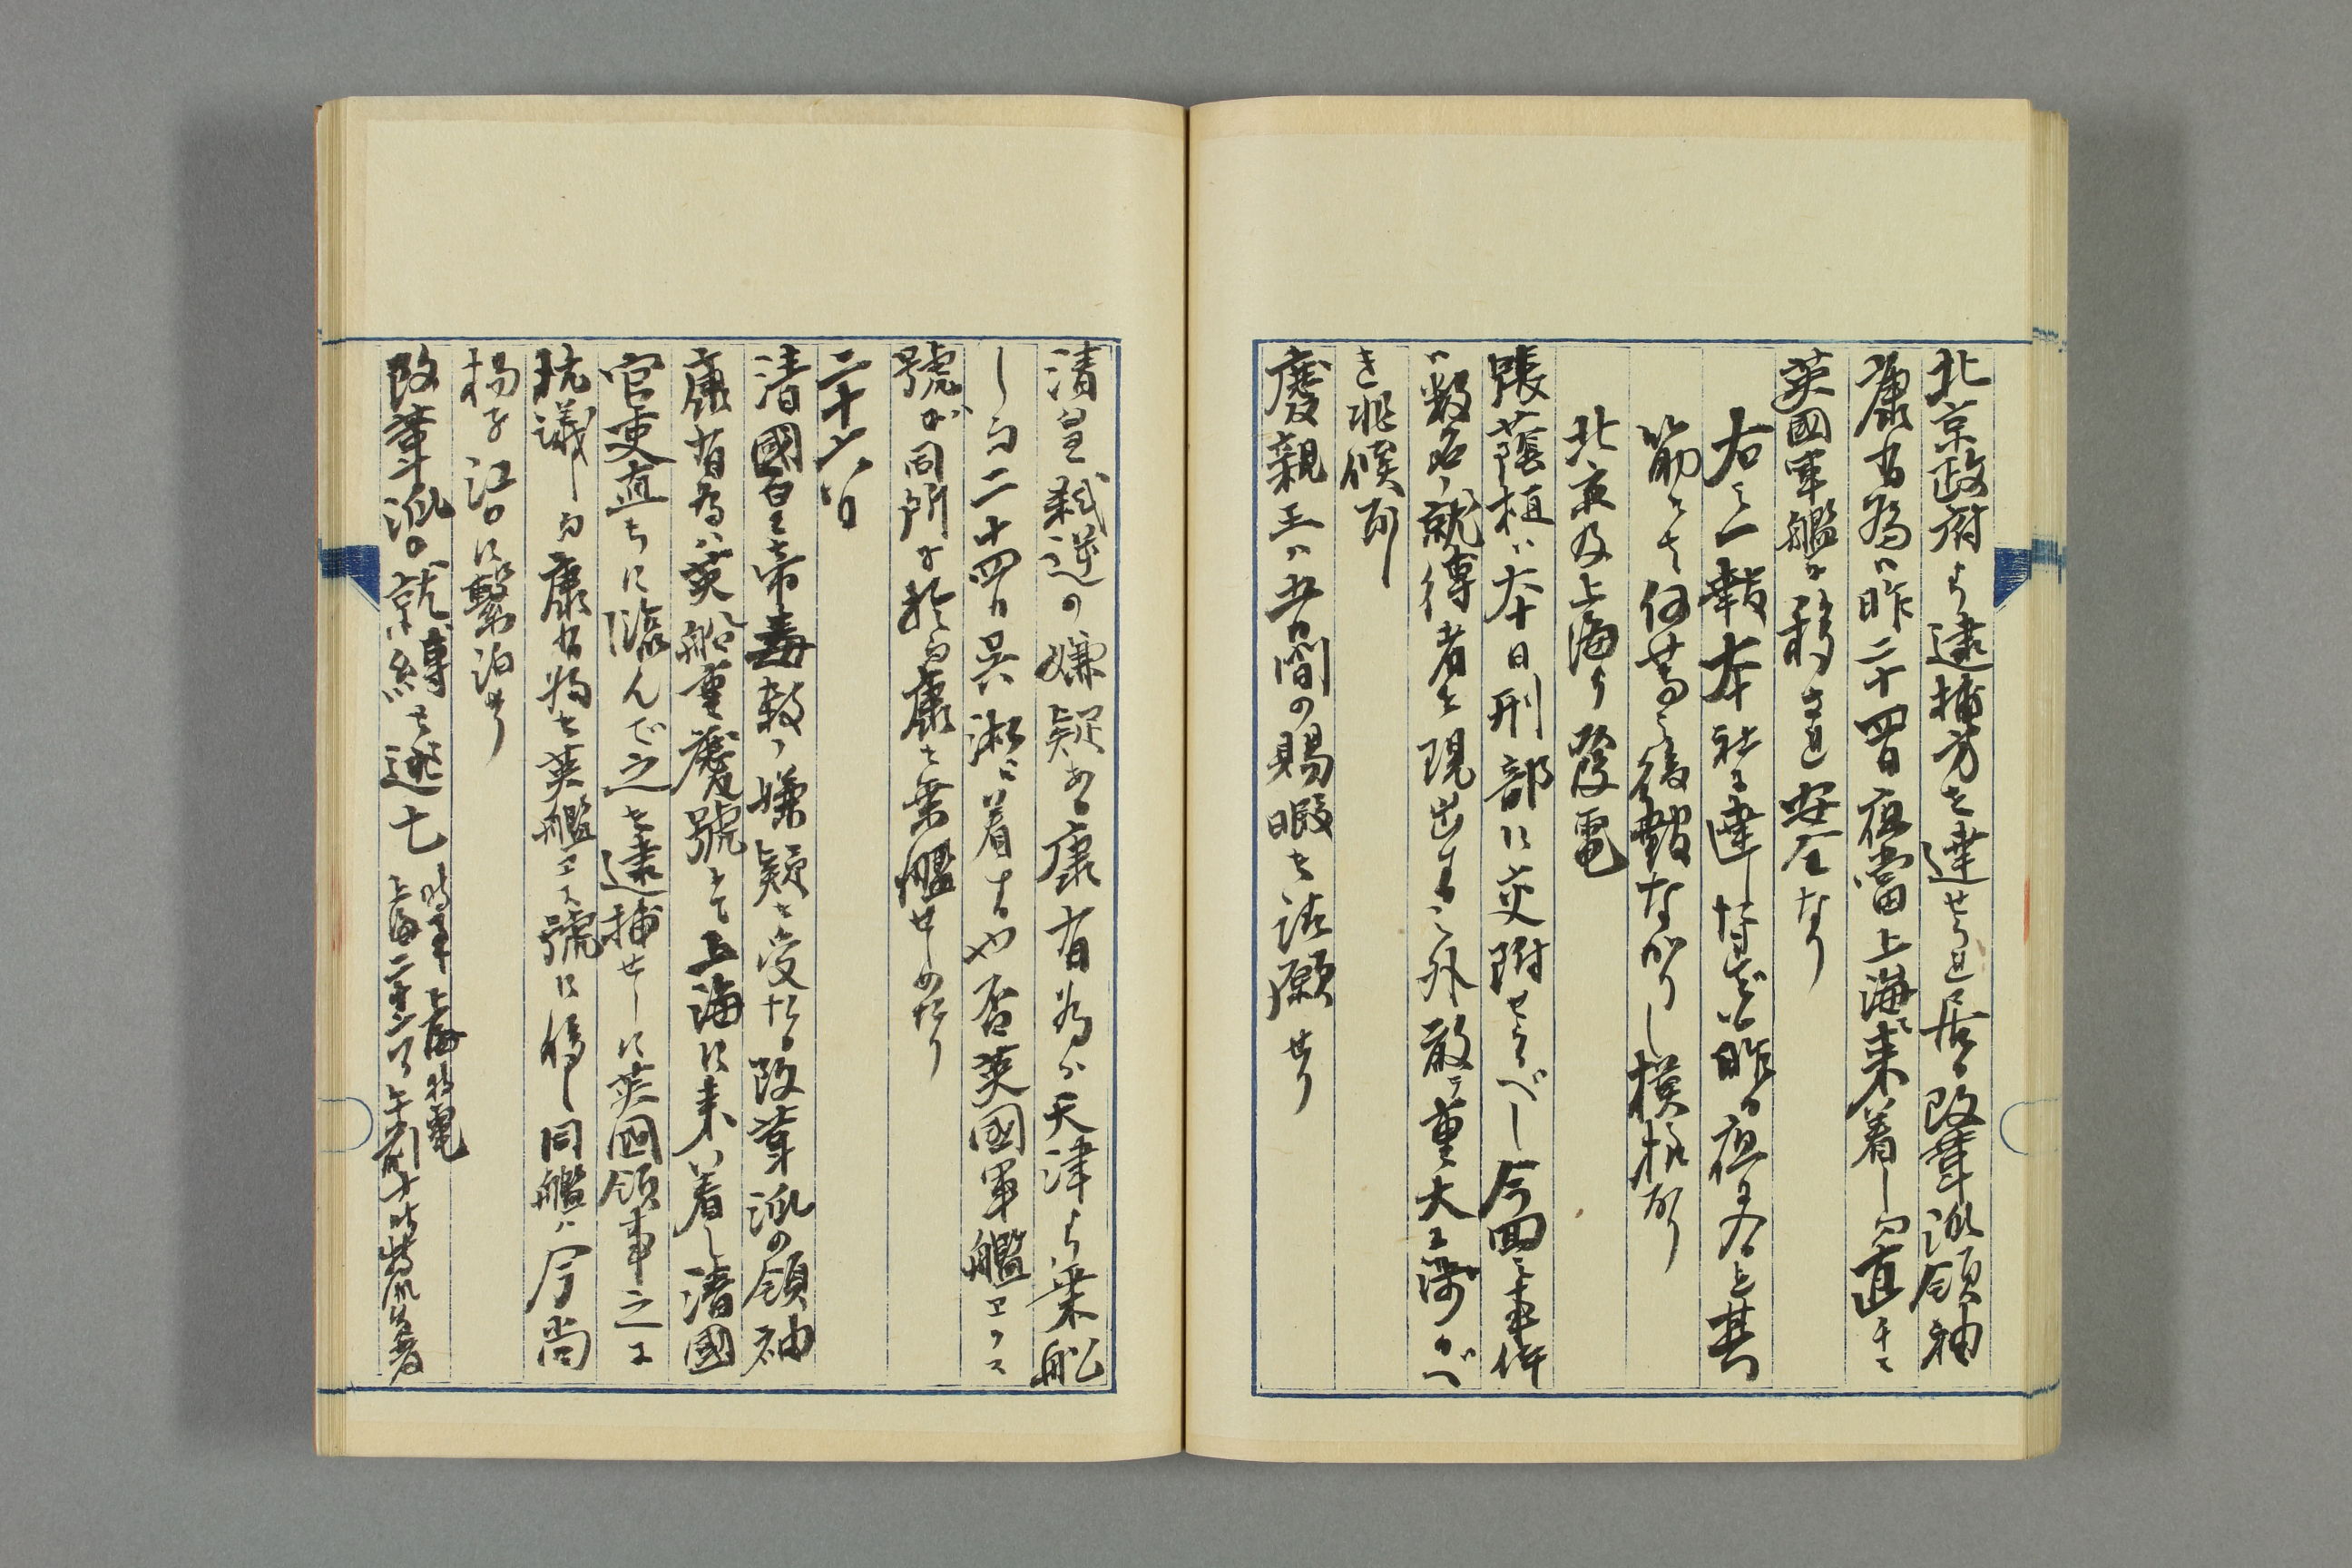 北京政府より逮捕方を達せられ居る改革派領袖
康有為は昨二十四日夜當上海に来着し而直ちに
英國軍艦に移され安全なり
右の一報本社に達したるが昨日夜に入るも其
筋にては何等の後報なかりし模様なり
北京及上海より發電
張蔭桓は本日刑部に交附せらるべし今回の事件
は数名の就縛者を現出するの外敢て重大に渉るべ
き兆候なし
慶親王は五日間の賜暇を請願せり
清皇弑逆の嫌疑ある康有為が天津より乗船
し而二十四日呉淞に着するや否英國軍艦エスク
號が同所に於而康を乗艦せしめたり
二十六日
清國皇帝毒殺の嫌疑を受けたる改革派の領袖
康有為は英船重慶號にて上海に来着し清國
官吏直ちに臨んで之を逮捕せしに英國領事之に
抗議し而康有為を英艦エスク號に移し同艦は今尚
揚子江口に繋泊せり
改革派の就縛と逃亡
時事上海特電
上海二十六日午前十時特派員發